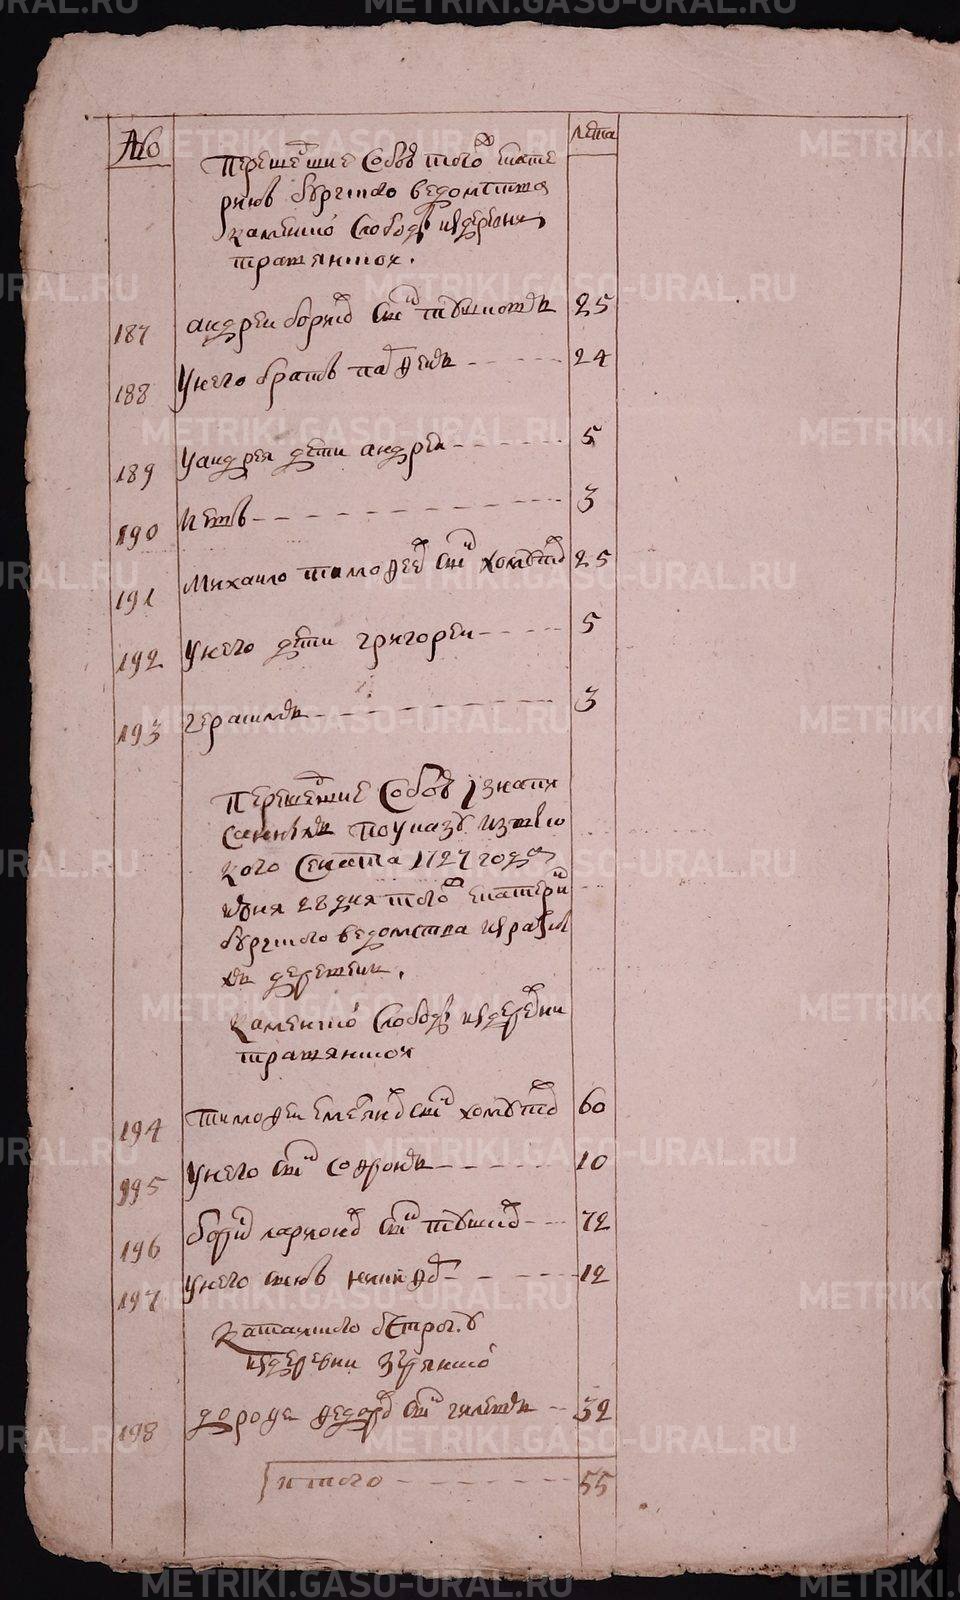 № лета
Перешедшие собою того ж екате
ринбургского ведомства
каменской слободы из деревни
травянской.
187 андрей борисов сын тушнолобов 25
188 У него брат фадей 24
189 У андрея дети андрей 5
190 Петр 3
191 Михайло тимофеев сын хомутов 25
192 У него дети григорей 5
193 герасим 3
Перешедшие собою
по указу из высо
кого Сената 1727 году
июня 28 дня того ж екатерин
бургского ведомства из разных
деревень.
каменской слободы из деревни
травянской
194 тимофей емельянов сын хомутов 60
195 У него сын софрон 10
196 борис ларионов сын 72
197 У него сынов никифор 12
Катайского острогу
из деревни зырянской
198 дорофей федоров сын 32
итого 55
METRIKI.GASO-URAL.RU